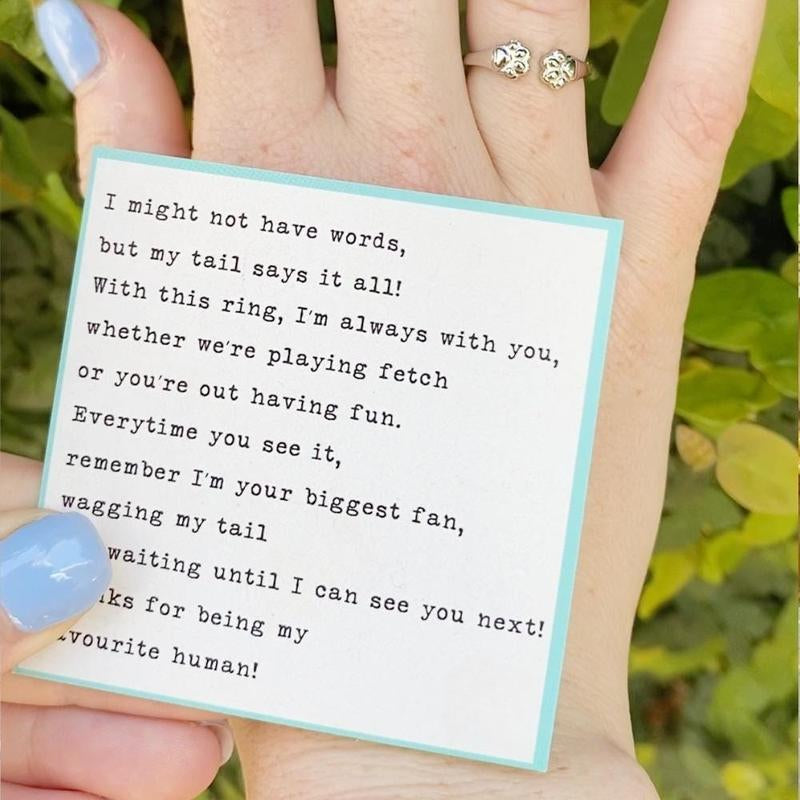 I might not have words,
but my tail says it all!
With this ring, I'm always with you,
whether we're playing fetch
or you're out having fun.
Everytime you see it,
remember I'm your biggest fan,
wagging my tail
waiting until I can see you next!
for being my
human!